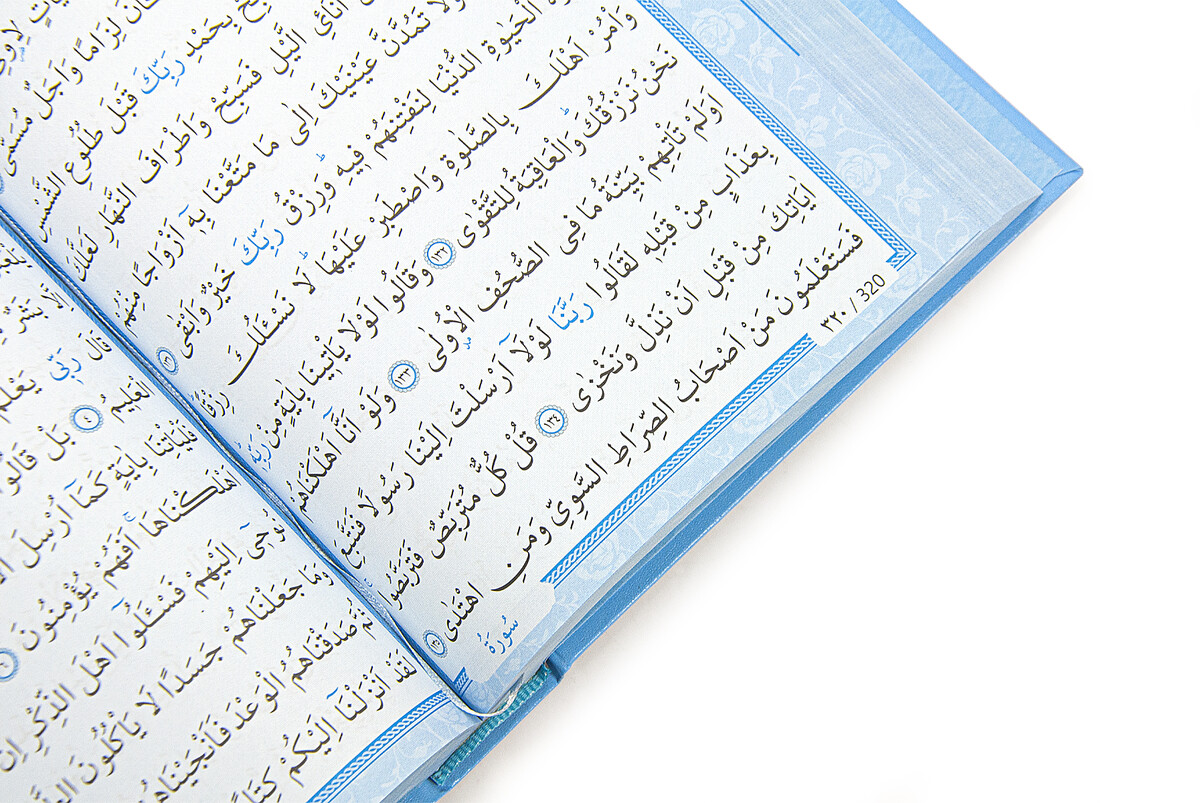 كَانَ لِزَامًا وَاَجَلٌ مُسَمًّى
بِحَمْدِ رَبِّكَ قَبْلَ طُلُوعِ الشَّمْسِ
اٰنَٓائِ الَّيْلِ فَسَبِّحْ وَاَطْرَافَ النَّهَارِ لَعَلَّكَ
وَلَا تَمُدَّنَّ عَيْنَيْكَ اِلٰى مَا مَتَّعْنَا بِه۪ٓ اَزْوَاجًا مِنْهُمْ
الْحَيٰوةِ الدُّنْيَا لِنَفْتِنَهُمْ ف۪يهِ وَرِزْقُ رَبِّكَ خَيْرٌ وَاَبْقٰى ١٣١
وَأْمُرْ اَهْلَكَ بِالصَّلٰوةِ وَاصْطَبِرْ عَلَيْهَا لَا نَسْـَٔلُكَ رِزْقًا
نَحْنُ نَرْزُقُكَ وَالْعَاقِبَةُ لِلتَّقْوٰى ١٣٢ وَقَالُوا لَوْلَا يَأْت۪ينَا بِاٰيَةٍ مِنْ رَبِّه۪
اَوَلَمْ تَأْتِهِمْ بَيِّنَةُ مَا فِي الصُّحُفِ الْاُو۫لٰى ١٣٣ وَلَوْ اَنَّٓا اَهْلَكْنَاهُمْ
بِعَذَابٍ مِنْ قَبْلِه۪ لَقَالُوا رَبَّنَا لَوْلَٓا اَرْسَلْتَ اِلَيْنَا رَسُولًا فَنَتَّبِعَ
اٰيَاتِكَ مِنْ قَبْلِ اَنْ نَذِلَّ وَنَخْزٰى ١٣٤ قُلْ كُلٌّ مُتَرَبِّصٌ فَتَرَبَّصُوا
فَسَتَعْلَمُونَ مَنْ اَصْحَابُ الصِّرَاطِ السَّوِيِّ وَمَنِ اهْتَدٰى ١٣٥
٣٢٠ / 320
سُورَةُ
قَالَ رَبّ۪ي يَعْلَمُ
الْعَل۪يمُ ٤ بَلْ قَالُوا
فَلْيَأْتِنَا بِاٰيَةٍ كَمَٓا اُرْسِلَ
اَهْلَكْنَاهَا اَفَهُمْ يُؤْمِنُونَ ٦
نُوح۪ٓي اِلَيْهِمْ فَسْـَٔلُٓوا اَهْلَ الذِّكْرِ اِنْ
وَمَا جَعَلْنَاهُمْ جَسَدًا لَا يَأْكُلُونَ
ثُمَّ صَدَقْنَاهُمُ الْوَعْدَ فَاَنْجَيْنَاهُمْ
لَقَدْ اَنْزَلْنَٓا اِلَيْكُمْ